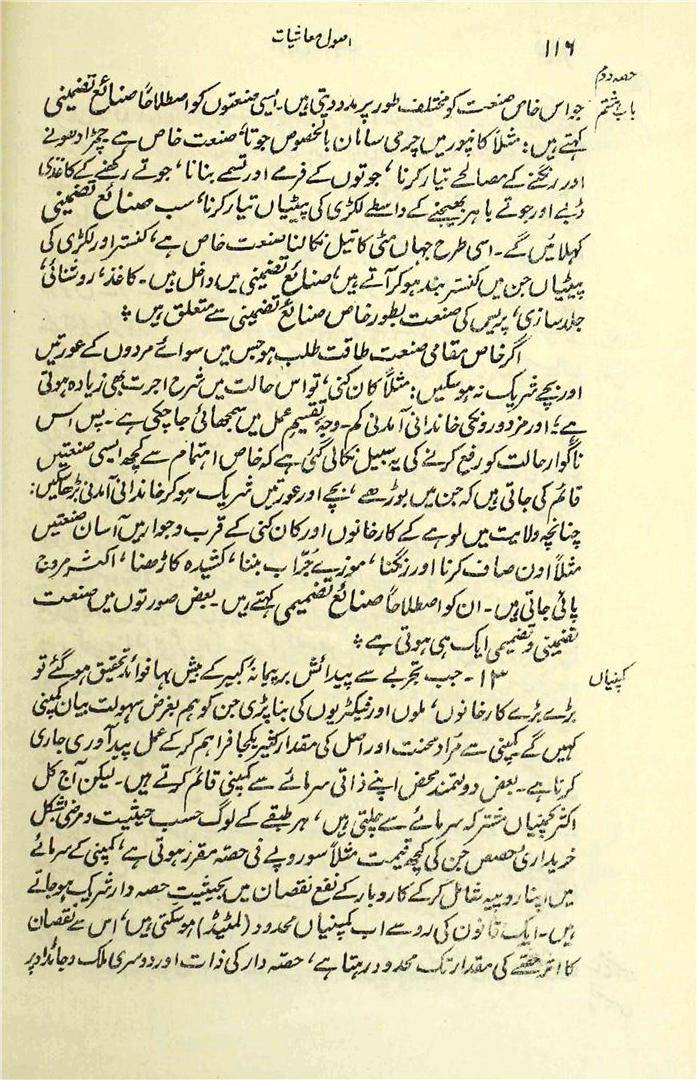 ۱۱۶
اصول معاشیات
حصہ دوم
باب ہشتم
جو اس خاص صنعت کو مختلف طور پر مدد دیتی ہیں۔ ایسی صنعتوں کو اصطلاحاً صنائع تضمینی
کہتے ہیں: مثلاً کانپور میں چرمی سامان بالخصوص جوتا، صنعت خاص ہے چمڑا دھونے
اور رنگنے کے مصالحے تیار کرنا، جوتوں کے فرمے اور تسمے بنانا، جوتے رکھنے کے کاغذی
ڈبے اور جوتے باہر بھیجنے کے واسطے لکڑی کی پیٹیاں تیار کرنا، سب صنائع تضمینی
کہلائیں گے۔ اسی طرح جہاں مٹی کا تیل نکالنا صنعت خاص ہے، کنستر اور لکڑی کی
پیٹیاں جن میں کنستر بند ہو کر آتے ہیں، صنائع تضمینی میں داخل ہیں۔ کاغذ، روشنائی،
جلد سازی، پریس کی صنعت بطور خاص صنائع تضمینی سے متعلق ہیں ؞
اگر خاص مقامی صنعت طاقت طلب ہو جس میں سوائے مردوں کے عورتیں
اور بچے شریک نہ ہو سکیں: مثلاً کان کنی، تو اس حالت میں شرح اجرت بھی زیادہ ہوتی
ہے؛ اور مزدوروں کی خاندانی آمدنی کم۔ وجہ تقسیم عمل میں سمجھائی جا چکی ہے۔ پس اس
ناگوار حالت کو رفع کرنے کی یہ سبیل نکالی گئی ہے کہ خاص اہتمام سے کچھ ایسی صنعتیں
قائم کی جاتی ہیں کہ جن میں بوڑھے، بچے اور عورتیں شریک ہو کر خاندانی آمدنی بڑھا سکیں:
چنانچہ ولایت میں لوہے کے کارخانوں اور کان کنی کے قرب و جوار میں آسان صنعتیں
مثلاً اون صاف کرنا اور رنگنا، موزے جرّاب بننا، کشیدہ کاڑھنا، اکثر مروج
پائی جاتی ہیں۔ ان کو اصطلاحاً صنائع تضمیمی کہتے ہیں۔ بعض صورتوں میں صنعت
تضمینی و تضمیمی ایک ہی ہوتی ہے ؞
کپنیاں
۱۳۔ جب تجربے سے پیدائش بر پیمانۂ کبیر کے بیش بہا فوائد تحقیق ہو گئے تو
بڑے بڑے کارخانوں، ملوں اور فیکٹریوں کی بنا پڑی جن کو ہم بغرض سہولت بیان کمپنی
کہیں گے کمپنی سے مراد محنت اور اصل کی مقدار کثیر یکجا فراہم کر کے عمل پیدا آوری جاری
کرنا ہے۔ بعض دولتمند محض اپنے ذاتی سرمائے سے کمپنی قائم کرتے ہیں۔ لیکن آج کل
اکثر کمپنیاں مشترکہ سرمائے سے چلتی ہیں، ہر طبقے کے لوگ حسب حیثیت و مرضی بشکل
خریداری حصص جن کی کچھ قیمت مثلاً سو روپے فی حصہ مقرر ہوتی ہے، کمپنی کے سرمائے
میں اپنا روپیہ شامل کر کے کاروبار کے نفع نقصان میں بحیثیت حصہ دار شریک ہو جاتے
ہیں۔ ایک قانون کی رو سے اب کمپنیاں محدود (لمیٹیڈ) ہو سکتی ہیں، اس سے نقصان
کا اثر حصے کی مقدار تک محدود رہتا ہے، حصہ دار کی ذات اور دوسری ملک و جائداد پر